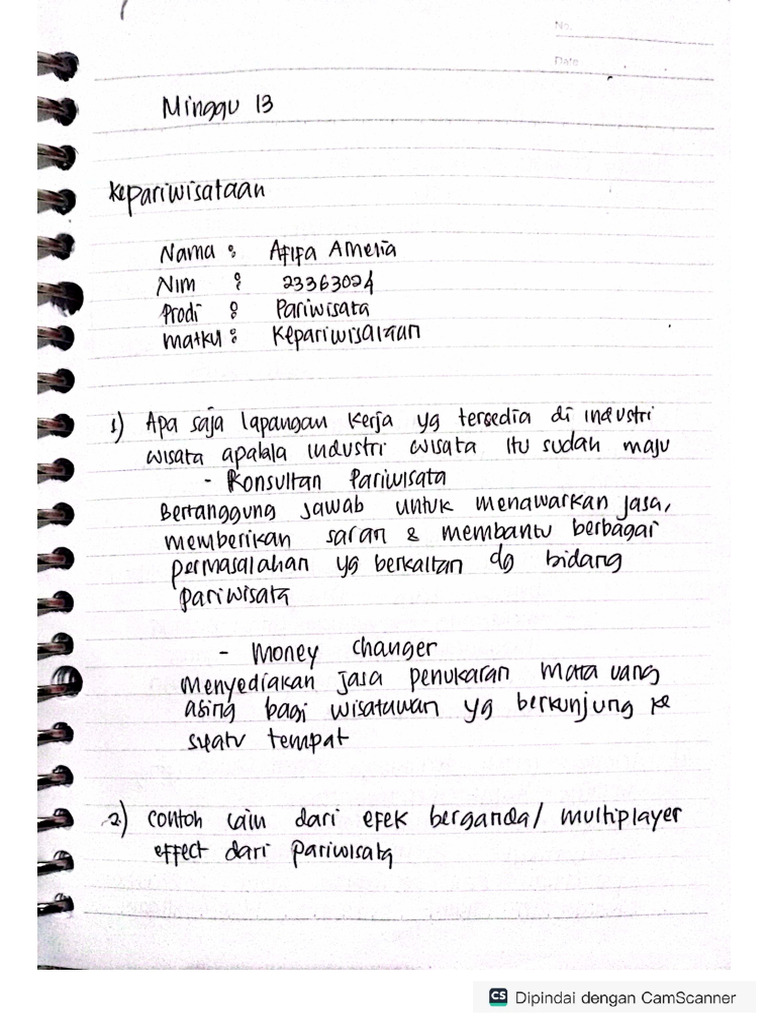 No.
Date
Minggu 13
Kepariwisataan
Nama : Afifa Amelia
Nim : 23363024
Prodi : Pariwisata
matkul : Kepariwisataan
1) Apa saja lapangan kerja yg tersedia di industri
wisata apalala industri wisata itu sudah maju
- Konsultan Pariwisata
Bertanggung jawab untuk menawarkan jasa,
memberikan saran & membantu berbagai
permasalahan yg berkaitan dg bidang
pariwisata
- Money changer
Menyediakan jasa penukaran mata uang
asing bagi wisatawan yg berkunjung ke
suatu tempat
2) Contoh lain dari efek berganda/ multiplayer
effect dari pariwisata
CS Dipindai dengan CamScanner